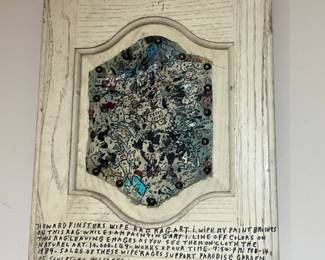 HOWARD FINSTERS WIPE RAG RAG.ART.I.WIPE.MY PAINT BRUSHES
ON THIS RAG WHILE I AM PAINTING ART.I.LINE OFF COLORS ON
THIS RAG LEAVING EMAGES AS YOU SEE THEM ON CLOTH.THE
NATUREL ART.10.000.589.WORKS OF OUR TIME.9:54.PM.FEB-14.
1989-SALES OF THESE WIPE RAGES SUPPORT PARADISE GARDEN